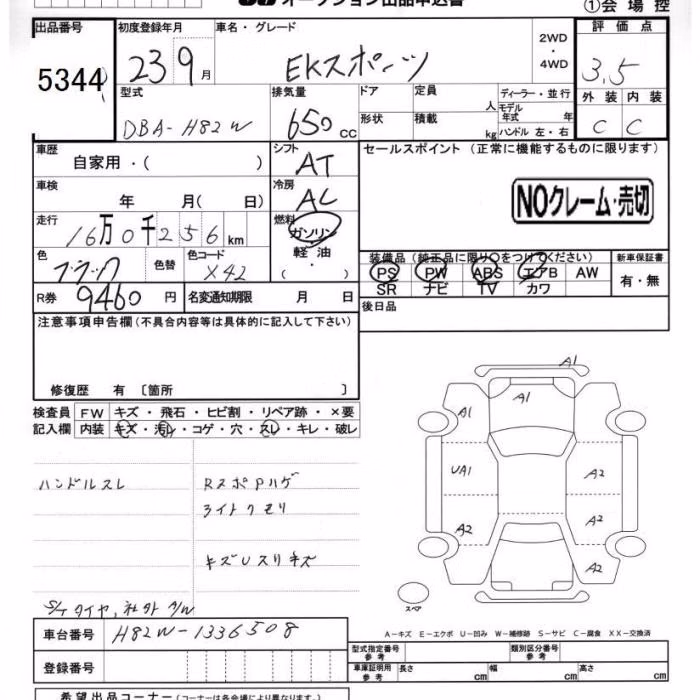 オークション出品申込書 ①会場控
出品番号 初度登録年月 車名・グレード 2WD・4WD 評価点
5344 23 9月 EKスポーツ 3.5
型式 排気量 ドア 定員 人 ディーラー・並行 外装 内装
DBA-H82W 650cc 形状 積載 kg モデル年式 年 ハンドル 左・右 C C
車歴 シフト セールスポイント (正常に機能するものに限ります)
自家用・( ) AT
車検 冷房 NOクレーム・売切
年 月( 日) AC
走行 燃料
16万0千256km ガソリン
色 色替 色コード 軽油 装備品 (純正品に限り○をつけてください) 新車保証書
ブラック X42 ・ PS PW ABS エアB AW 有・無
R券 9460円 名変通知期限 月 日 SR ナビ TV カワ
注意事項申告欄 (不具合内容等は具体的に記入して下さい) 後日品
修復歴 有 〔箇所 〕
検査員 FW キズ・飛石・ヒビ割・リペア跡・×要
記入欄 内装 キズ・汚レ・コゲ・穴・スレ・キレ・破レ
A1
A1
A1
UA1 A2
A2 A2
A2
ハンドルスレ RスポPハゲ
ライトクモリ
キズUスリキズ
S/Tタイヤ,社外A/W スペア
A-キズ E-エクボ U-凹み W-補修跡 S-サビ C-腐食 XX-交換済
車台番号 H82W-1336508
型式指定番号 参考 類別区分番号 参考
登録番号 車庫証明用 参考 長さ cm 幅 cm 高さ cm
希望出品コーナー (コーナーは各会場により異なります。)